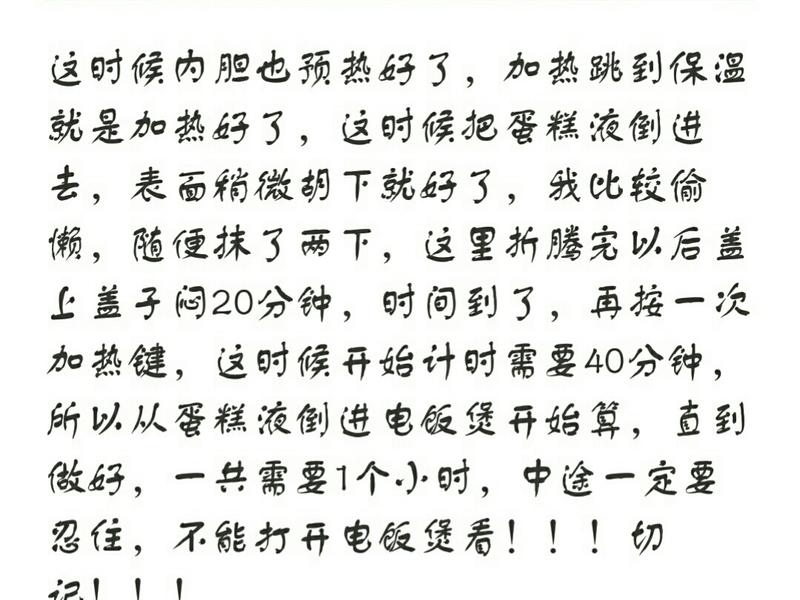 这时候内胆也预热好了，加热跳到保温
就是加热好了，这时候把蛋糕液倒进
去，表面稍微胡下就好了，我比较偷
懒，随便抹了两下，这里折腾完以后盖
上盖子闷20分钟，时间到了，再按一次
加热键，这时候开始计时需要40分钟，
所以从蛋糕液倒进电饭煲开始算，直到
做好，一共需要1个小时，中途一定要
忍住，不能打开电饭煲看！！！切
记！！！